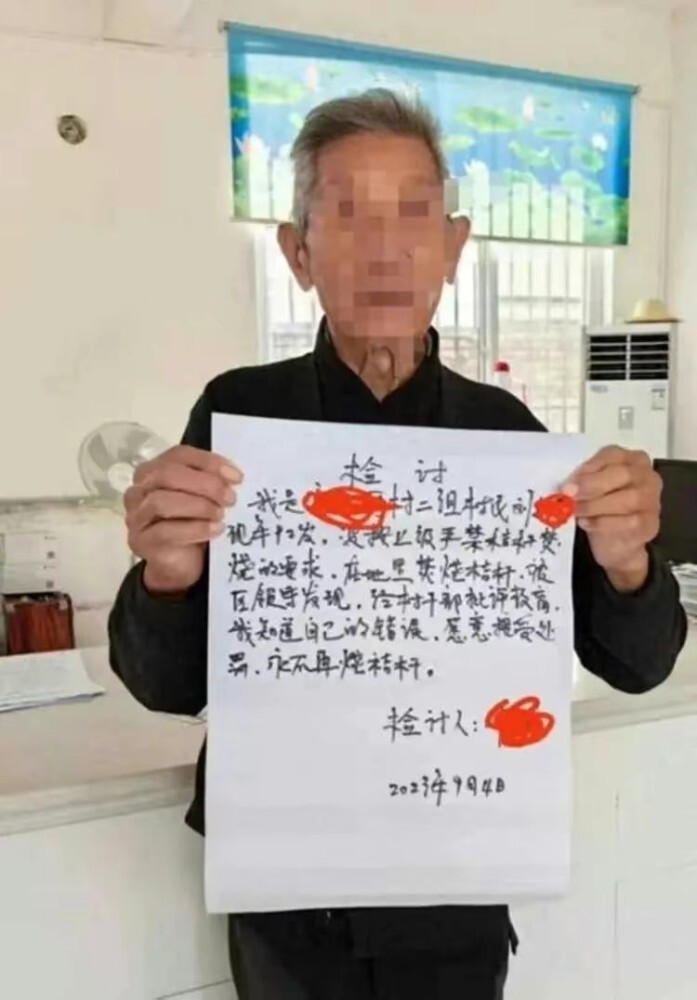 检讨
我是村二组村民刘
现年92岁。没按上级严禁秸秆焚
烧的要求，在地里焚烧秸秆，被
区领导发现，经村干部批评教育，
我知道自己的错误，愿意接受处
罚，永不再烧秸秆。
检讨人：
2023年9月4日